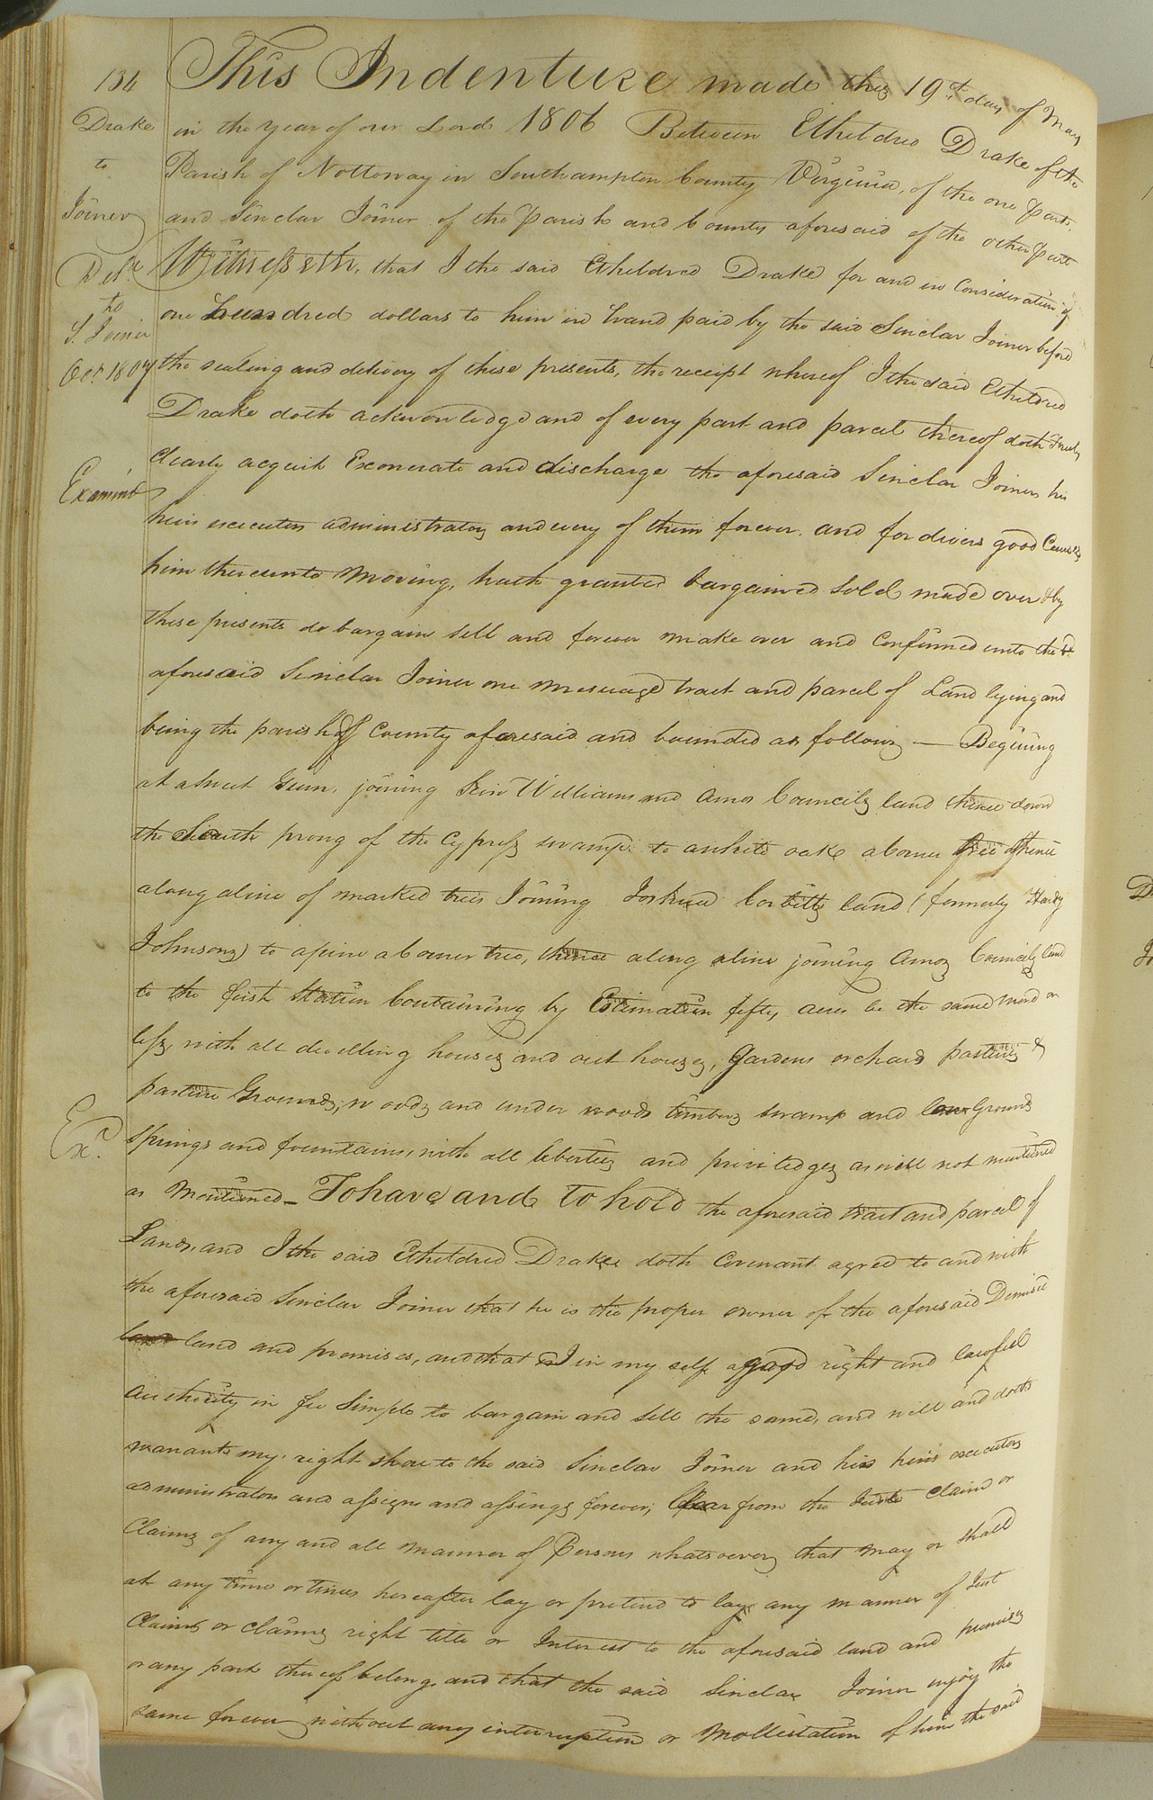 184
Drake
to
Joiner
Del.d
to
S. Joiner
Oct. 1807
Examind
Ex.d
This Indenture made this 19th day of May
in the year of our Lord 1806 Between Etheldred Drake of the
Parish of Nottoway in Southampton County Virginia, of the one part.
and Sinclar Joiner of the parish and County aforesaid of the other part
Witnesseth, that I the said Etheldred Drake for and in Consideration of
one hundred dollars to him in hand paid by the said Sinclar Joiner before
the sealing and delivery of these presents, the receipt whereof I the said Etheldred
Drake doth acknowledge and of every part and parcel thereof doth freely
Clearly acquit Exonerate and discharge the aforesaid Sinclar Joiner his
heirs executors administrators and every of them forever. and for divers good Causes
him thereunto Moving, hath granted bargained Sold made over & by
these presents do bargain sell and forever make over and Confirmed unto the
aforesaid Sinclar Joiner one messuage tract and parcel of Land lying and
being the parish of County aforesaid and bounded as follows — Begining
at a sweet Gum, joining Williams and Amos Councils land thence down
the South prong of the Cypress swamp to a white oake a borner tree thence
along a line of marked trees Joining Joshua Corbitts land (formerly Hardy
Johnsons) to a pine a Corner tree, thence along a line joining Amos Councils land
to the first Station Containing by Estimation fifty acres be the same more or
less, with all dwelling houses and out houses, Gardens orchard pastures &
pasture Grounds, woods and under woods timbers swamp and low Grounds
Springs and fountains, with all liberties and priviledges as well not mentioned
as Mentioned — To have and to hold the aforesaid tract and parcel of
Land, and I the said Etheldred Drake doth Covenant agreed to and with
the aforesaid Sinclar Joiner that he is the proper owner of the aforesaid Demised
land and promises, and that I in my self a good right and lawfull
authority in fee Simple to bargain and Sell the same, and will and doth
warrant my right thare to the said Sinclar Joiner and his heirs executors
administrators and assigns and assings forever, Clear from the Claim or
Claims of any and all manner of Persons whatsoever, that may or shall
at any time or times hereafter lay or pretend to lay any manner of Just
Claims or claims right title or Interest to the aforesaid land and premises
or any part thereof belong, and that the said Sinclar Joiner injoy the
same forever without any interruption or Mollistation of him the said